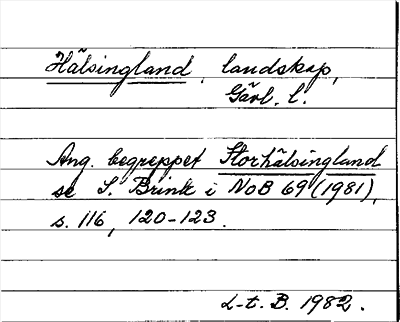 Hälsingland, landskap,
Gävl. l.
Ang. begreppet Storhälsingland
se S. Brink i NoB 69 (1981),
s. 116, 120-123.
L-t. B. 1982.